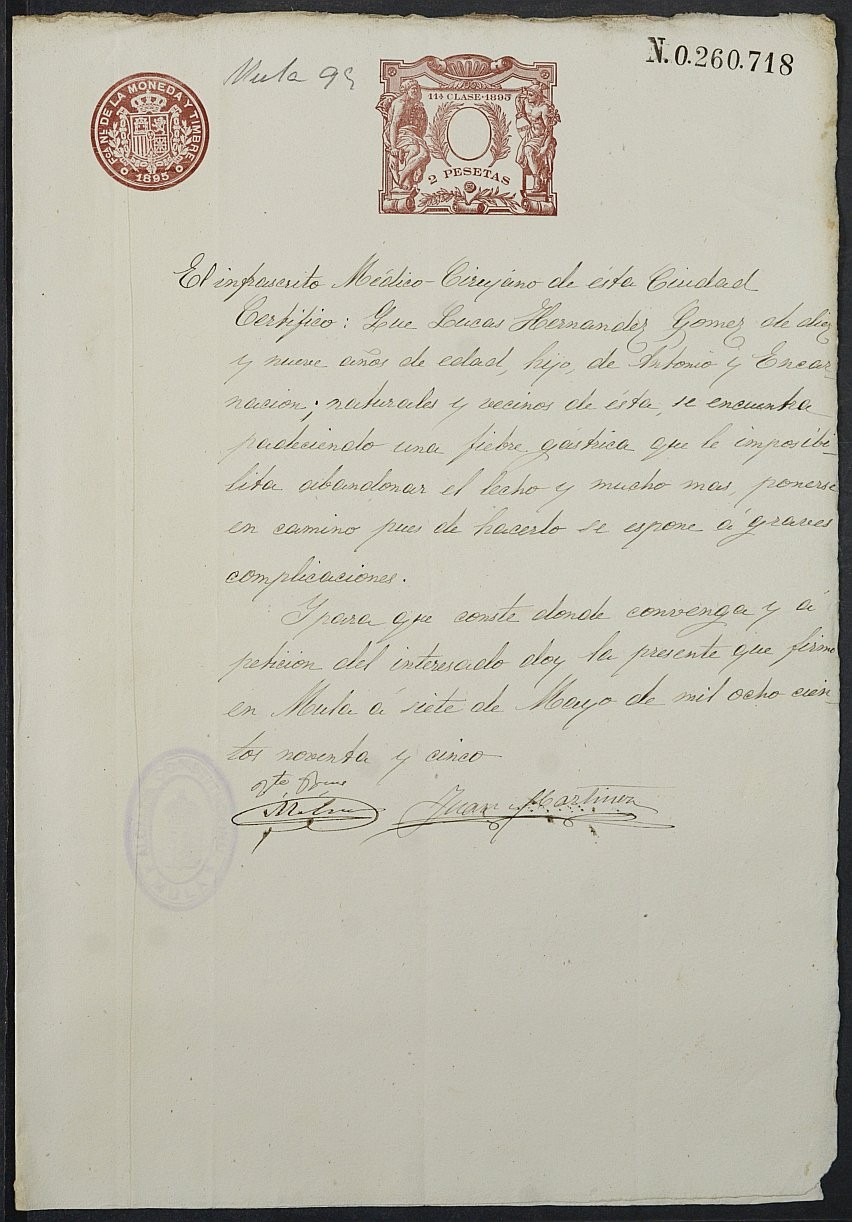 N.0.260.718
Mula 95
Fca. Nl. DE LA MONEDA Y TIMBRE
1895
11ª CLASE·1895
2 PESETAS
El infrascrito Médico-Cirujano de ésta Ciudad
Certifico: Que Lucas Hernandez Gomez de diez
y nueve años de edad, hijo, de Antonio y Encar-
nacion; naturales y vecinos de ésta, se encuentra
padeciendo una fiebre gástrica que le imposibi-
lita abandonar el lecho y mucho mas, ponerse
en camino pues de hacerlo se espone á graves
complicaciones.
Y para que conste donde convenga y á
petición del interesado doy la presente que firmo
en Mula á siete de Mayo de mil ocho cien-
tos noventa y cinco
Juan Martinez